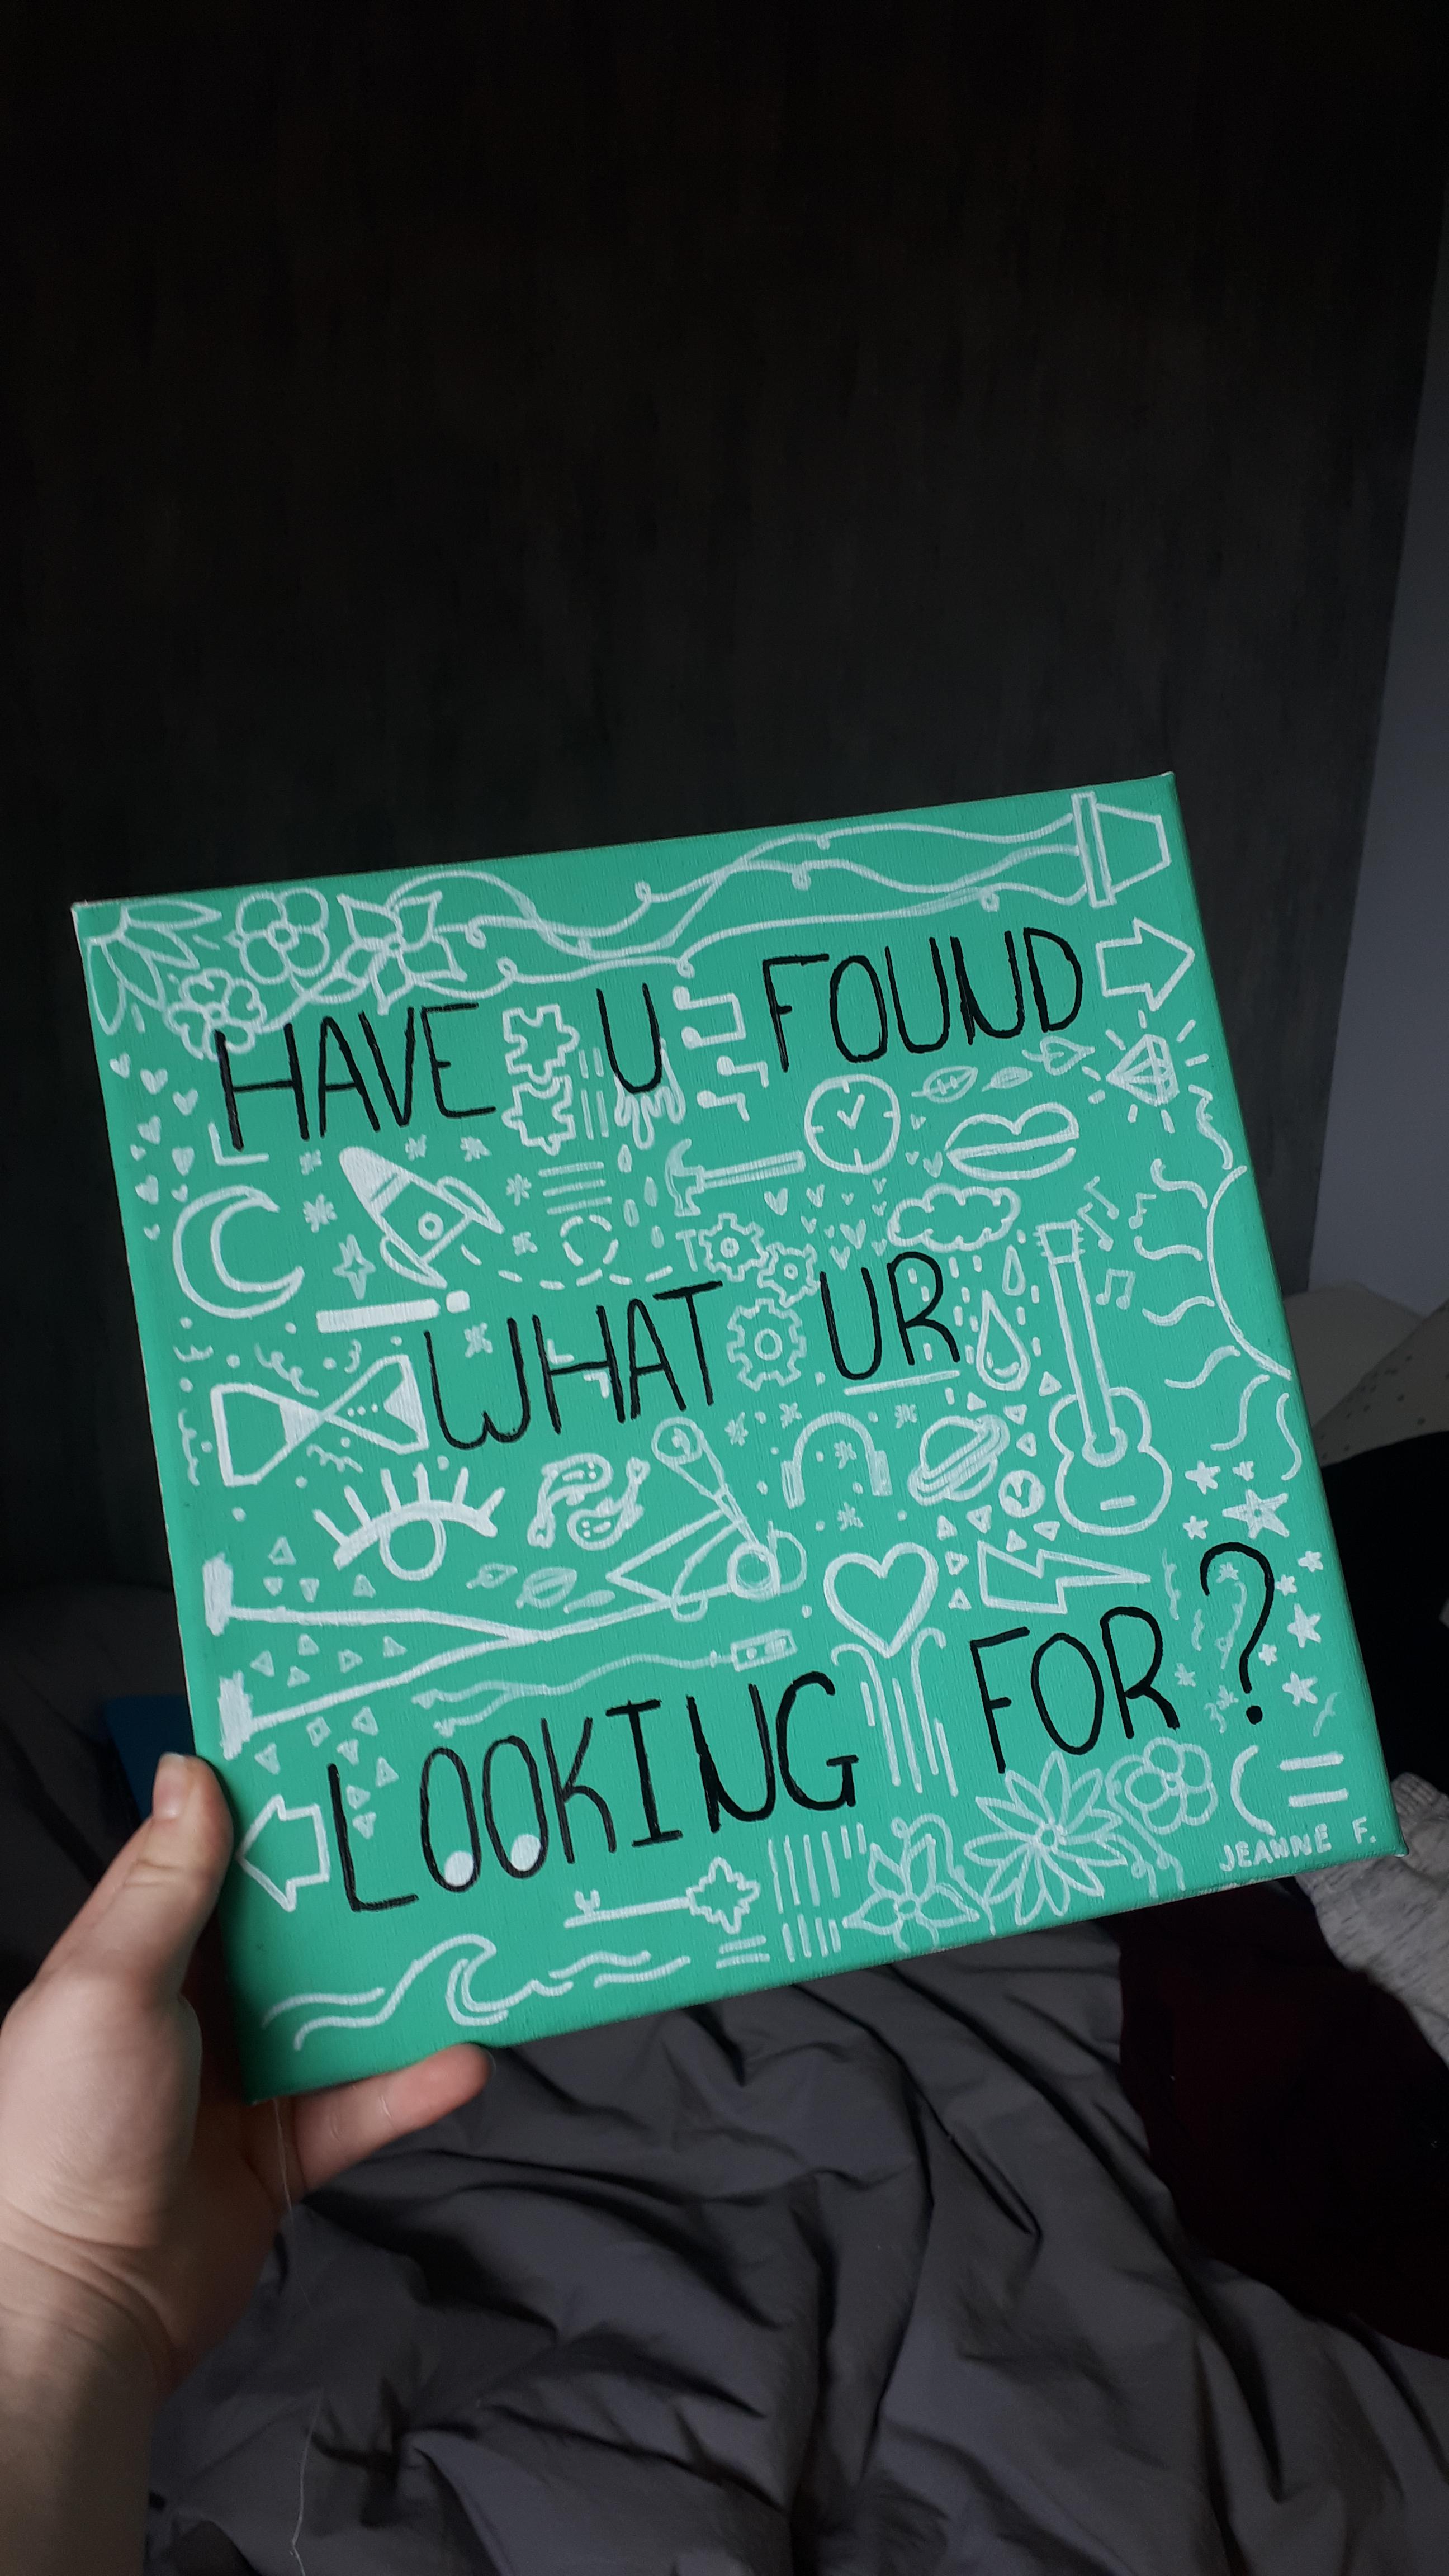 HAVE U FOUND
WHAT UR
LOOKING FOR?
JEANNE F.